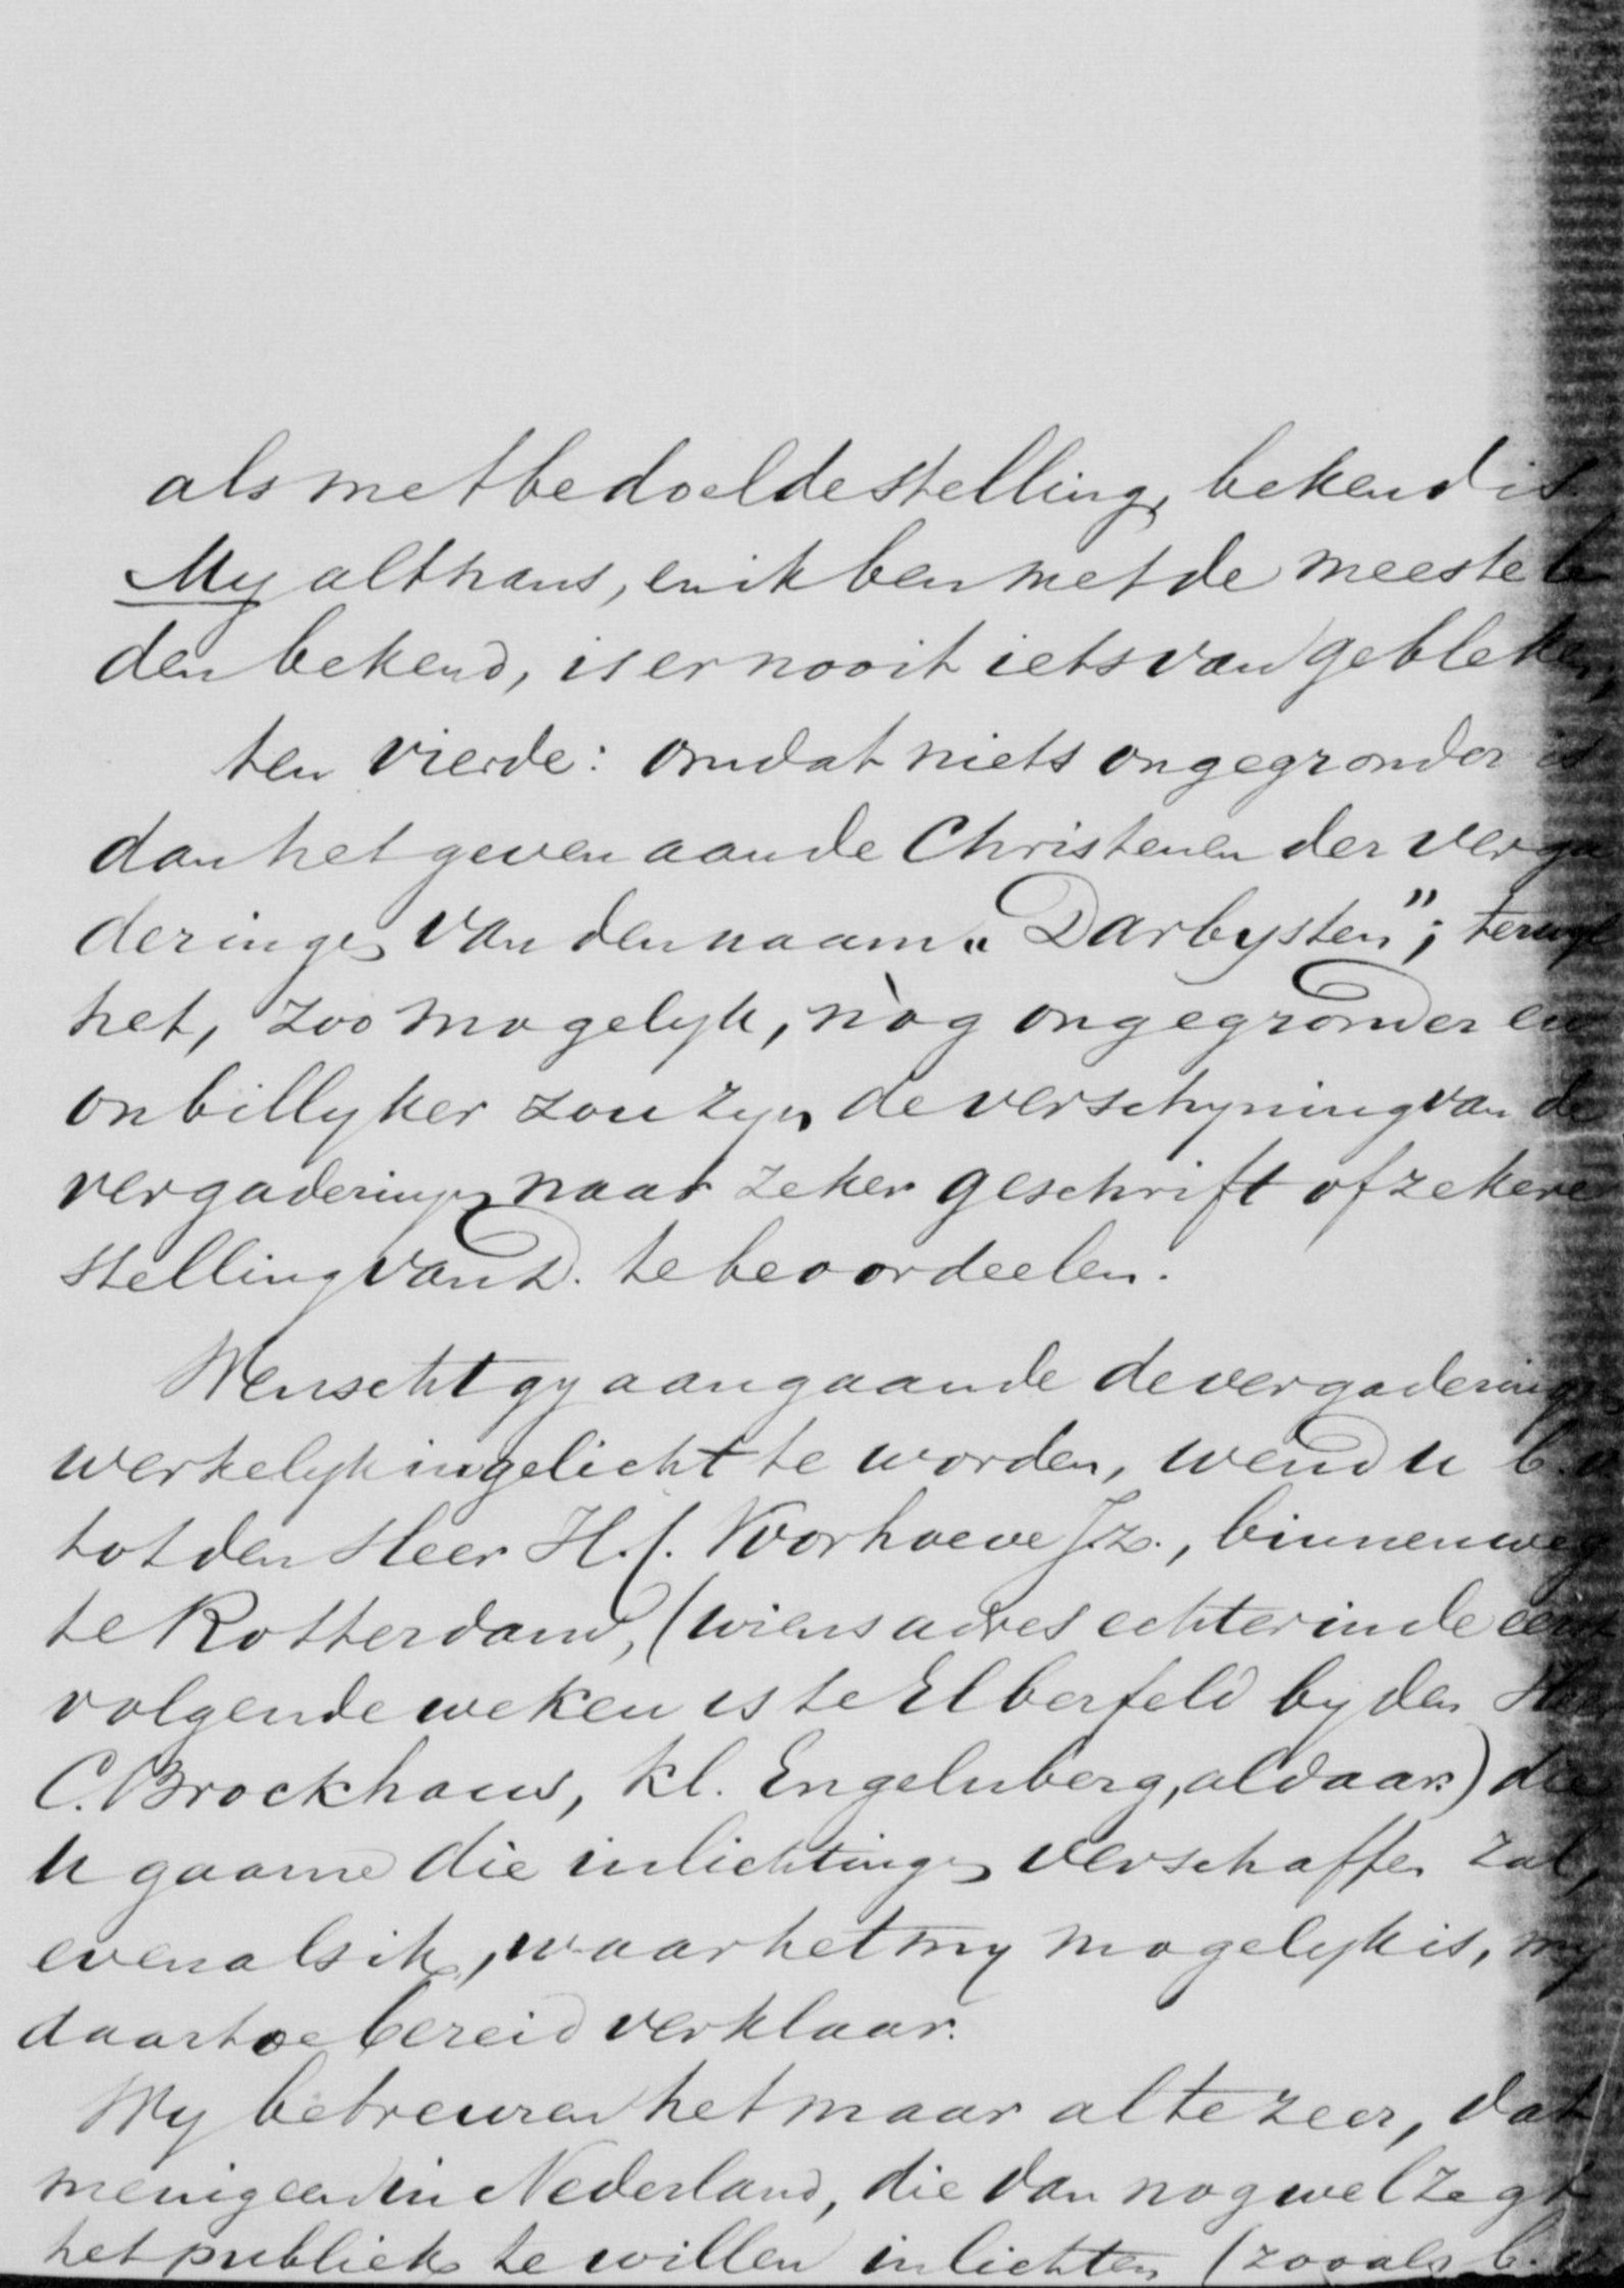 als met bedoelde stelling, bekend is.
My althans, en ik ben met de meeste le
den bekend, is er nooit iets van gebleken,
ten vierde: omdat niets ongegronder is
dan het geven aan de Christenen der verga
deringen van den naam „Darbysten"; terwyl
het, zoo mogelyk, nòg ongegronder en
onbillyker zou zyn de verschyning van de
vergaderingen naar zeker geschrift of zekere
stelling van D. te beoordeelen.
Wenscht gy aangaande de vergaderingen
werkelyk ingelicht te worden, wend u b.v.
tot den Heer H.C. Voorhoeve Jz., binnenweg
te Rotterdam, (wiens adres echter in de eerst
volgende weken is te Elberfeld by den Heer
C. Brockhaus, kl. Engelnberg, aldaar) die
u gaarne die inlichtingen verschaffen zal,
evenals ik, waar het my mogelyk is, my
daartoe bereid verklaar.
Wy betreuren het maar al te zeer, dat
menigeen in Nederland, die dan nog wel zegt
het publiek te willen inlichten (zooals b.v.